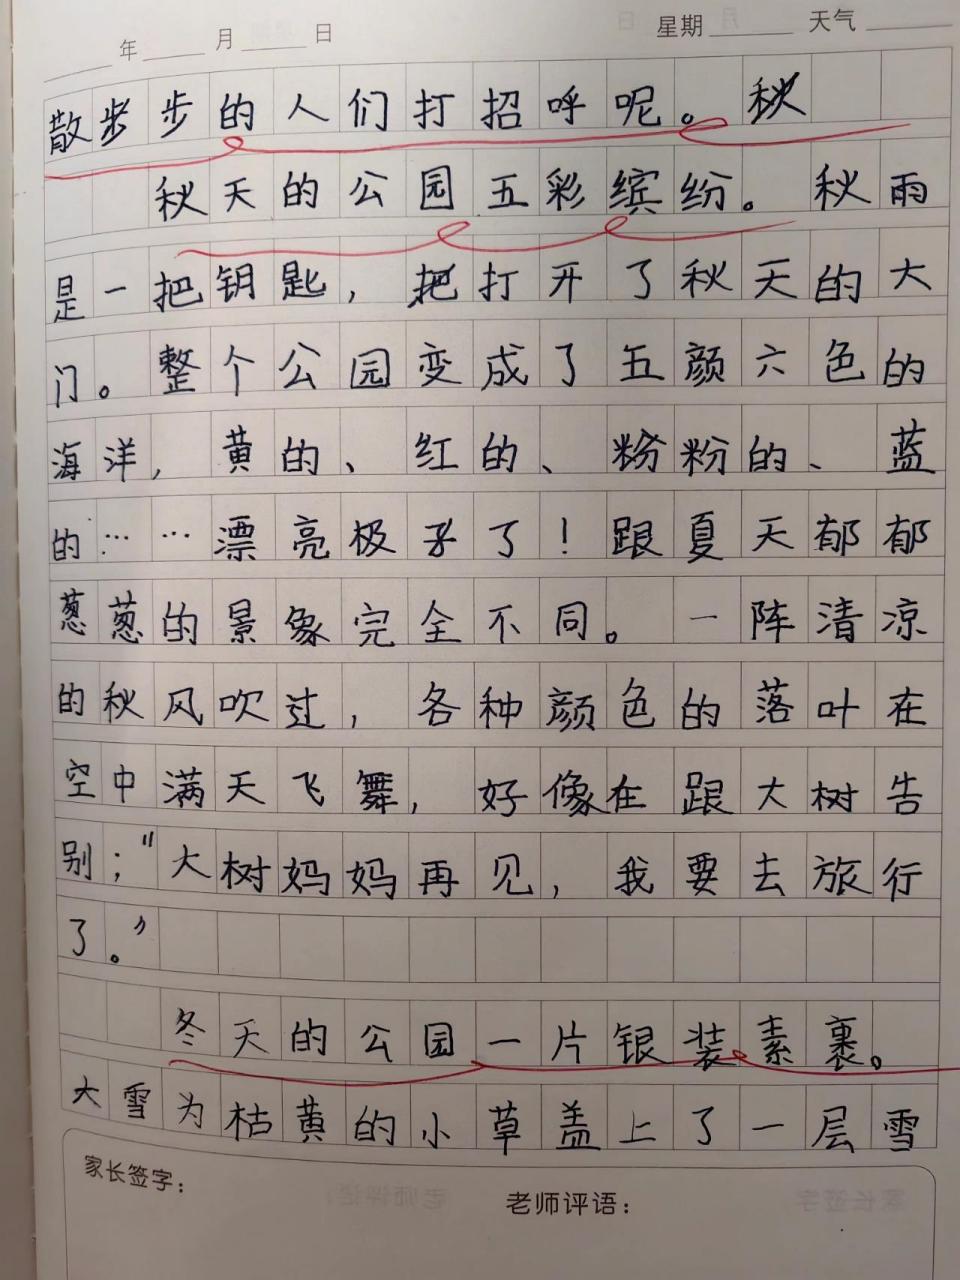 年 月 日 星期 天气
散步步的人们打招呼呢。秋
秋天的公园五彩缤纷。秋雨
是一把钥匙，把打开了秋天的大
门。整个公园变成了五颜六色的
海洋，黄的、红的、粉粉的、蓝
的……漂亮极了了！跟夏天郁郁
葱葱的景象完全不同。一阵清凉
的秋风吹过，各种颜色的落叶在
空中满天飞舞，好像在跟大树告
别；“大树妈妈再见，我要去旅行
了。”
冬天的公园一片银装素裹。
大雪为枯黄的小草盖上了一层雪
家长签字：
老师评语：